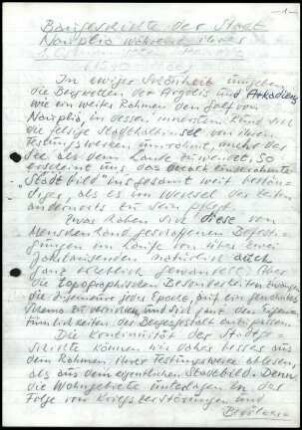 -1-
Baugeschichte der Stadt
Nauplia während ihrer
In ewiger Schönheit umgeben
die Bergketten der Argolis und Arkadiens
wie ein weiter Rahmen den Golf von
Nauplia, in dessen innerstem Rund sich
die felsige Stadthalbinsel von ihren
Festungswerken umrahmt, mehr der
See als dem Lande zuwendet. So
erscheint uns das
"Stadtbild" insgesamt weit bestän-
diger, als es im Wechsel der Zeiten
anderorts zu sein pflegt.
Zwar haben sich diese von
Menschenhand geschaffenen Befesti-
gungen im Laufe von über zwei
Jahrtausenden natürlich auch
ganz erheblich gewandelt. Aber
die topographischen Besonderheiten zwangen
die Ingenieure jeder Epoche, auf ein
Thema zu und sich ganz den Eigen-
tümlichkeiten der Berggestalt anzupassen.
Die Kontinuität der Stadtge-
schichte können wir daher besser aus
dem Rahmen ihrer Festungswerke ablesen,
als aus dem eigentlichen Stadtbild. Denn
die Wohngebiete unterlagen in der
Folge von Kriegszerstörungen und